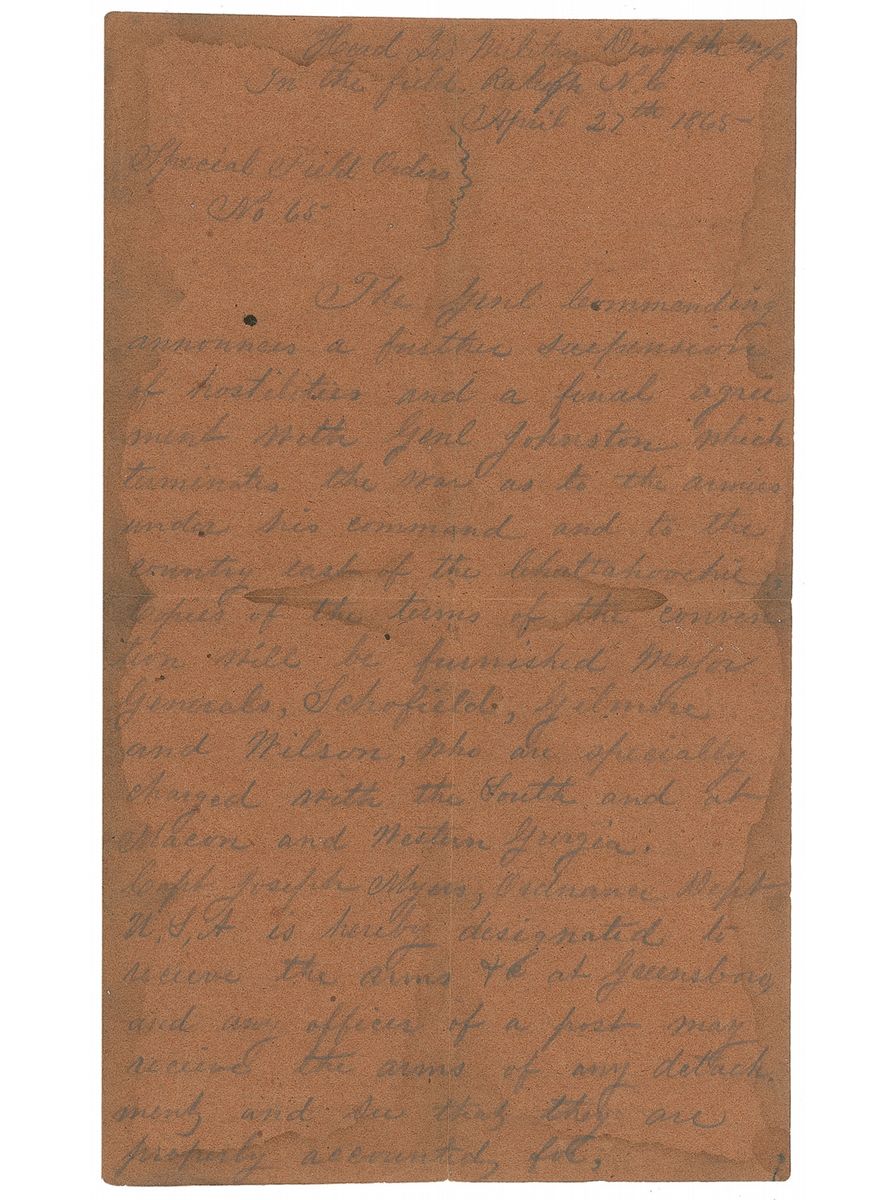 Head Qrs Military Div of the Miss
In the field, Raleigh N.C
April 27th 1865
Special Field Orders
No 65
The Genl Commanding
announces a further suspension
of hostilities and a final agree
ment with Genl Johnston which
terminates the war as to the armies
under his command and to the
country east of the Chattahoochie
Copies of the terms of the conven
tion will be furnished Major
Generals, Schofield, Gilmore
and Wilson, who are specially
charged with the South and at
Macon and Western Gurgia.
Capt Joseph Myers, Ordnance Dept
U,S,A is hereby designated to
recieve the arms &c at Greensboro,
and any officer of a post may
recieve the arms of any detach
ment, and see that they are
properly accounted, for,